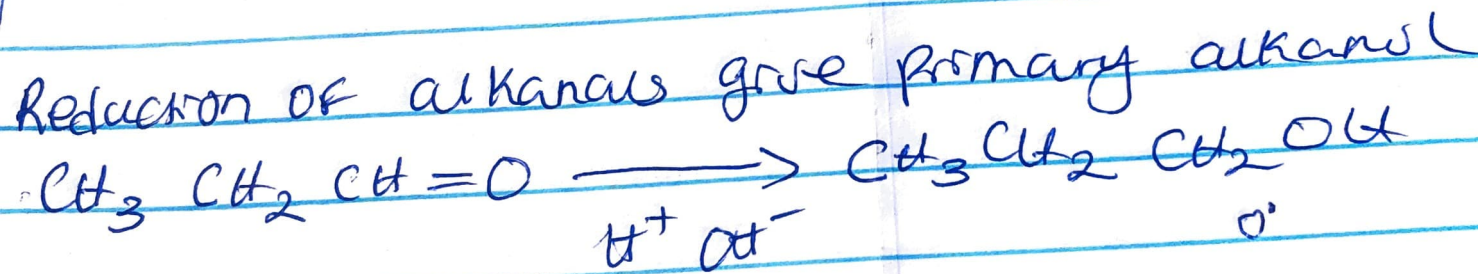 Reduction of alkanals give primary alkanol
CH₃ CH₂ CH=O ⟶ CH₃ CH₂ CH₂ OH
H⁺ OH⁻